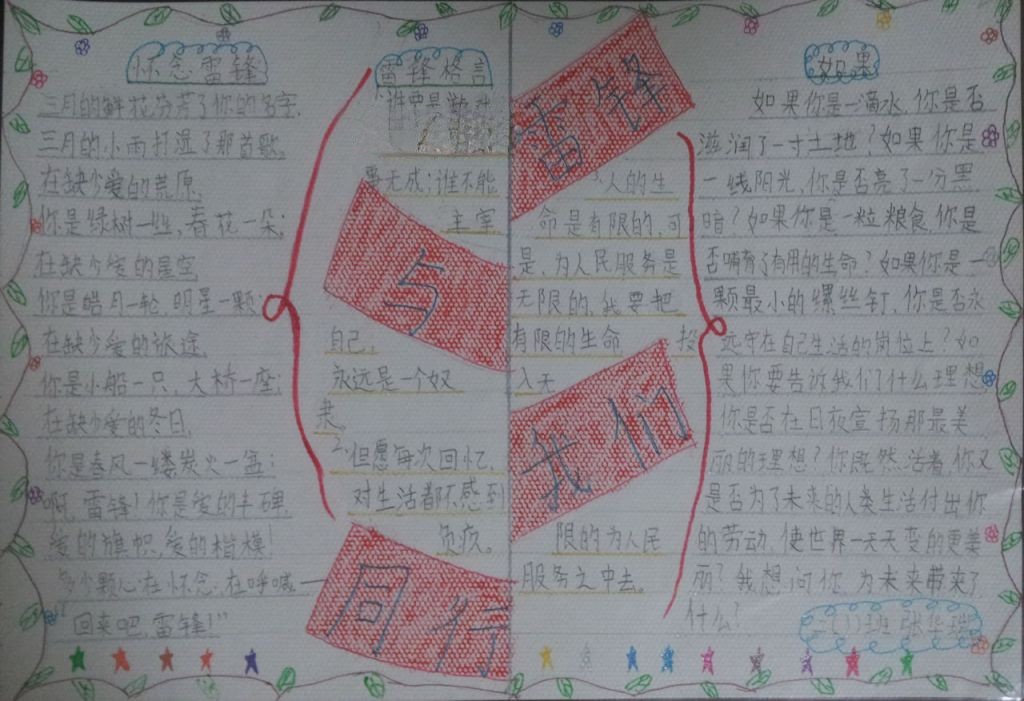 怀念雷锋
三月的鲜花芬芳了你的名字，
三月的小雨打湿了那首歌。
在缺少爱的荒原，
你是绿树一丝，春花一朵；
在缺少爱的星空
你是皓月一轮，明星一颗；
在缺少爱的旅途，
你是小船一只，大桥一座；
在缺少爱的冬日，
你是春风一缕炭火一盆；
啊，雷锋！你是爱的丰碑，
爱的旗帜，爱的楷模！
多少颗心在怀念，在呼喊——
“回来吧，雷锋！”
雷锋格言
1.谁要是游戏
事无成；谁不能
主宰
自己，
永远是一个奴
隶。
2.但愿每次回忆，
对生活都不感到
负疚。
雷锋
与
我们
同行
人的生
命是有限的，可
是，为人民服务是
无限的，我要把
有限的生命 投
入无
限的为人民
服务之中去。
如果
如果你是一滴水，你是否
滋润了一寸土地？如果你是
一线阳光，你是否亮了一分黑
暗？如果你是一粒粮食，你是
否哺育了有用的生命？如果你是一
颗最小的螺丝钉，你是否永
远守在自己生活的岗位上？如
果你要告诉我们什么理想
你是否在日夜宣扬那最美
丽的理想？你既然活着，你又
是否为了未来的人类生活付出你
的劳动，使世界一天天变的更美
丽？我想问你，为未来带来了
什么？
班 张华